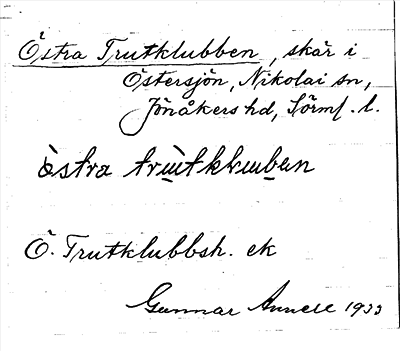 Östra Trutklubben, skär i
Östersjön, Nikolai sn,
Jönåkers hd, Sörml. l.
Ö. Trutklubbsh. ek
Gunnar Annell 1933